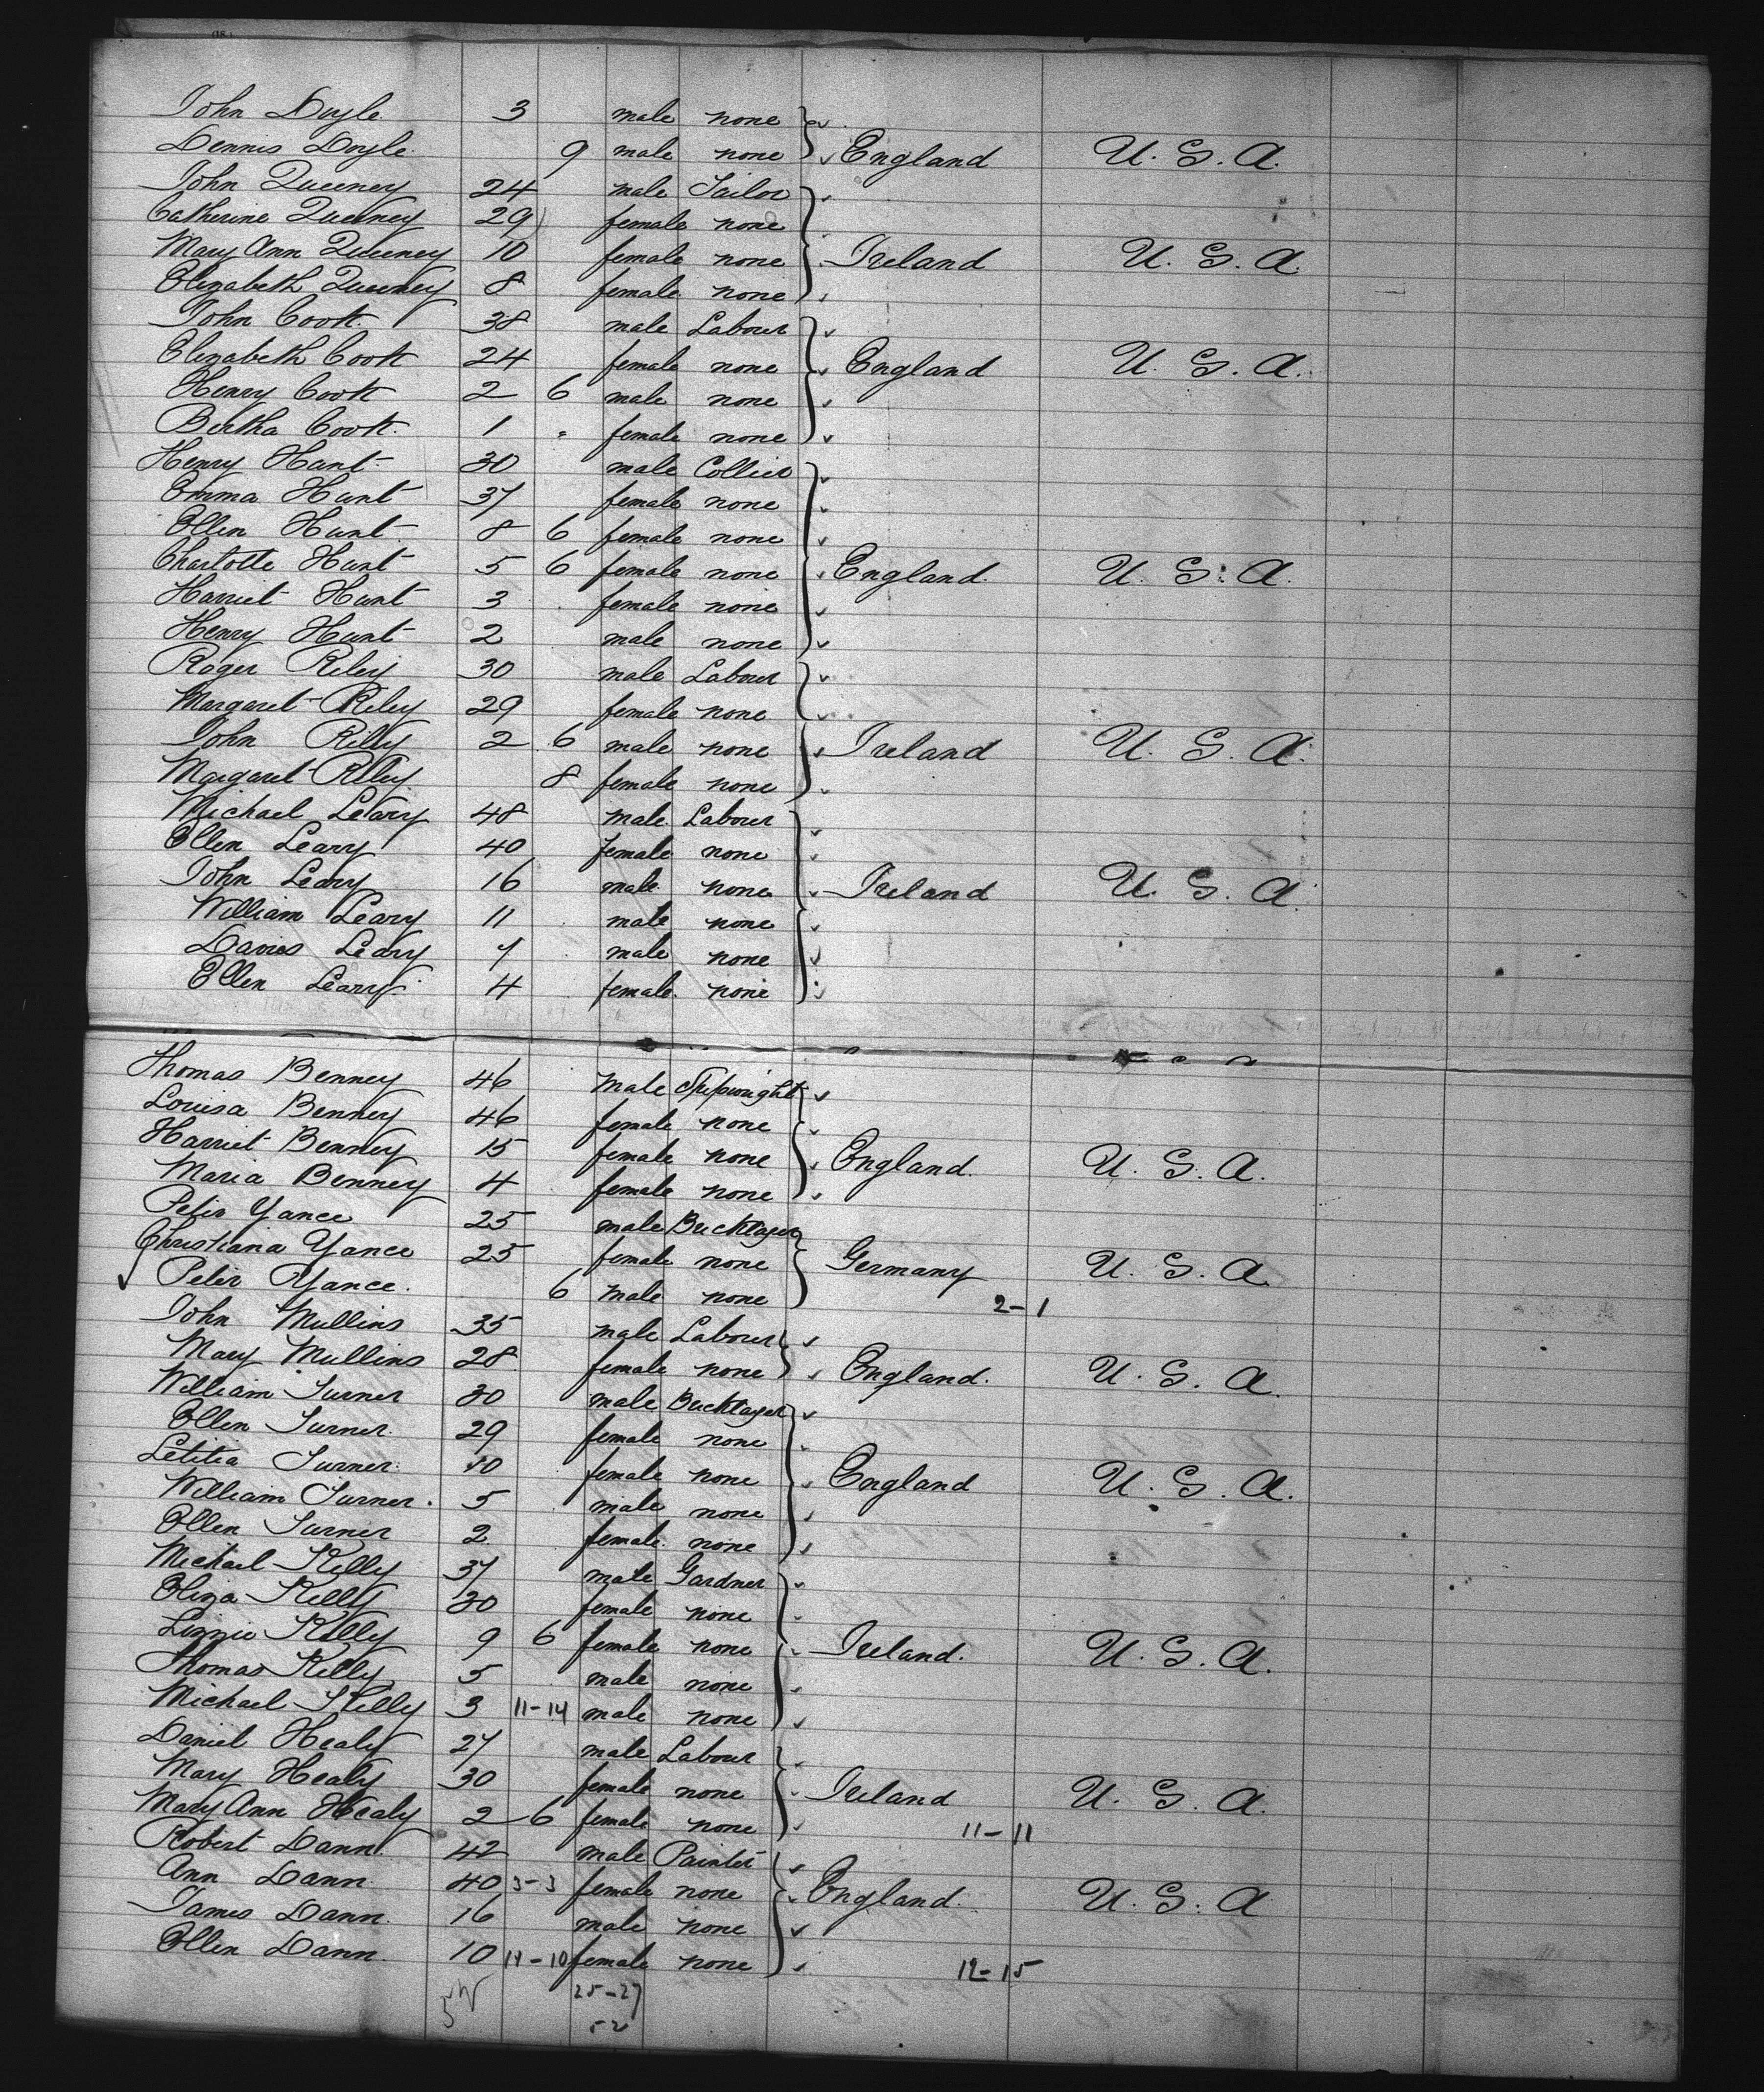 John Doyle 3 male none
Dennis Doyle 9 male none England U.S.A.
John Queeney 24 male Tailor
Catherine Queeney 29 female none
Mary Ann Queeney 10 female none Ireland U.S.A.
Elizabeth Queeney 8 female none
John Cook 38 male Labour
Elizabeth Cook 24 female none England U.S.A.
Henry Cook 2 6 male none
Bertha Cook 1 female none
Henry Hunt 30 male Collier
Emma Hunt 37 female none
Ellen Hunt 8 6 female none
Charlotte Hunt 5 6 female none England U.S.A.
Harriet Hunt 3 female none
Henry Hunt 2 male none
Roger Riley 30 male Labour
Margaret Riley 29 female none
John Riley 2 6 male none Ireland U.S.A.
Margaret Riley 8 female none
Michael Leary 48 male Labour
Ellen Leary 40 female none
John Leary 16 male none Ireland U.S.A.
William Leary 11 male none
Leary 7 male none
Ellen Leary 4 female none
Thomas Benney 46 male
Louisa Benney 46 female none
Harriet Benney 15 female none England U.S.A.
Maria Benney 4 female none
Peter Yance 25 male Bricklayer
Christiana Yance 25 female none Germany U.S.A.
Peter Yance 6 male none 2-1
John Mullins 35 male Labour
Mary Mullins 28 female none England U.S.A.
William Turner 30 male Bricklayer
Ellen Turner 29 female none
Letitia Turner 10 female none England U.S.A.
William Turner 5 male none
Ellen Turner 2 female none
Michael Kelly 37 male Gardner
Eliza Kelly 30 female none
Lizzie Kelly 9 6 female none Ireland U.S.A.
Thomas Kelly 5 male none
Michael Kelly 3 11-14 male none
Daniel Healy 27 male Labour
Mary Healy 30 female none Ireland U.S.A.
Mary Ann Healy 2 6 female none 11-11
Robert Dann 42 male Painter
Ann Dann 40 3-3 female none England U.S.A.
James Dann 16 male none
Ellen Dann 10 14-10 female none 12-15
52 25-27
52